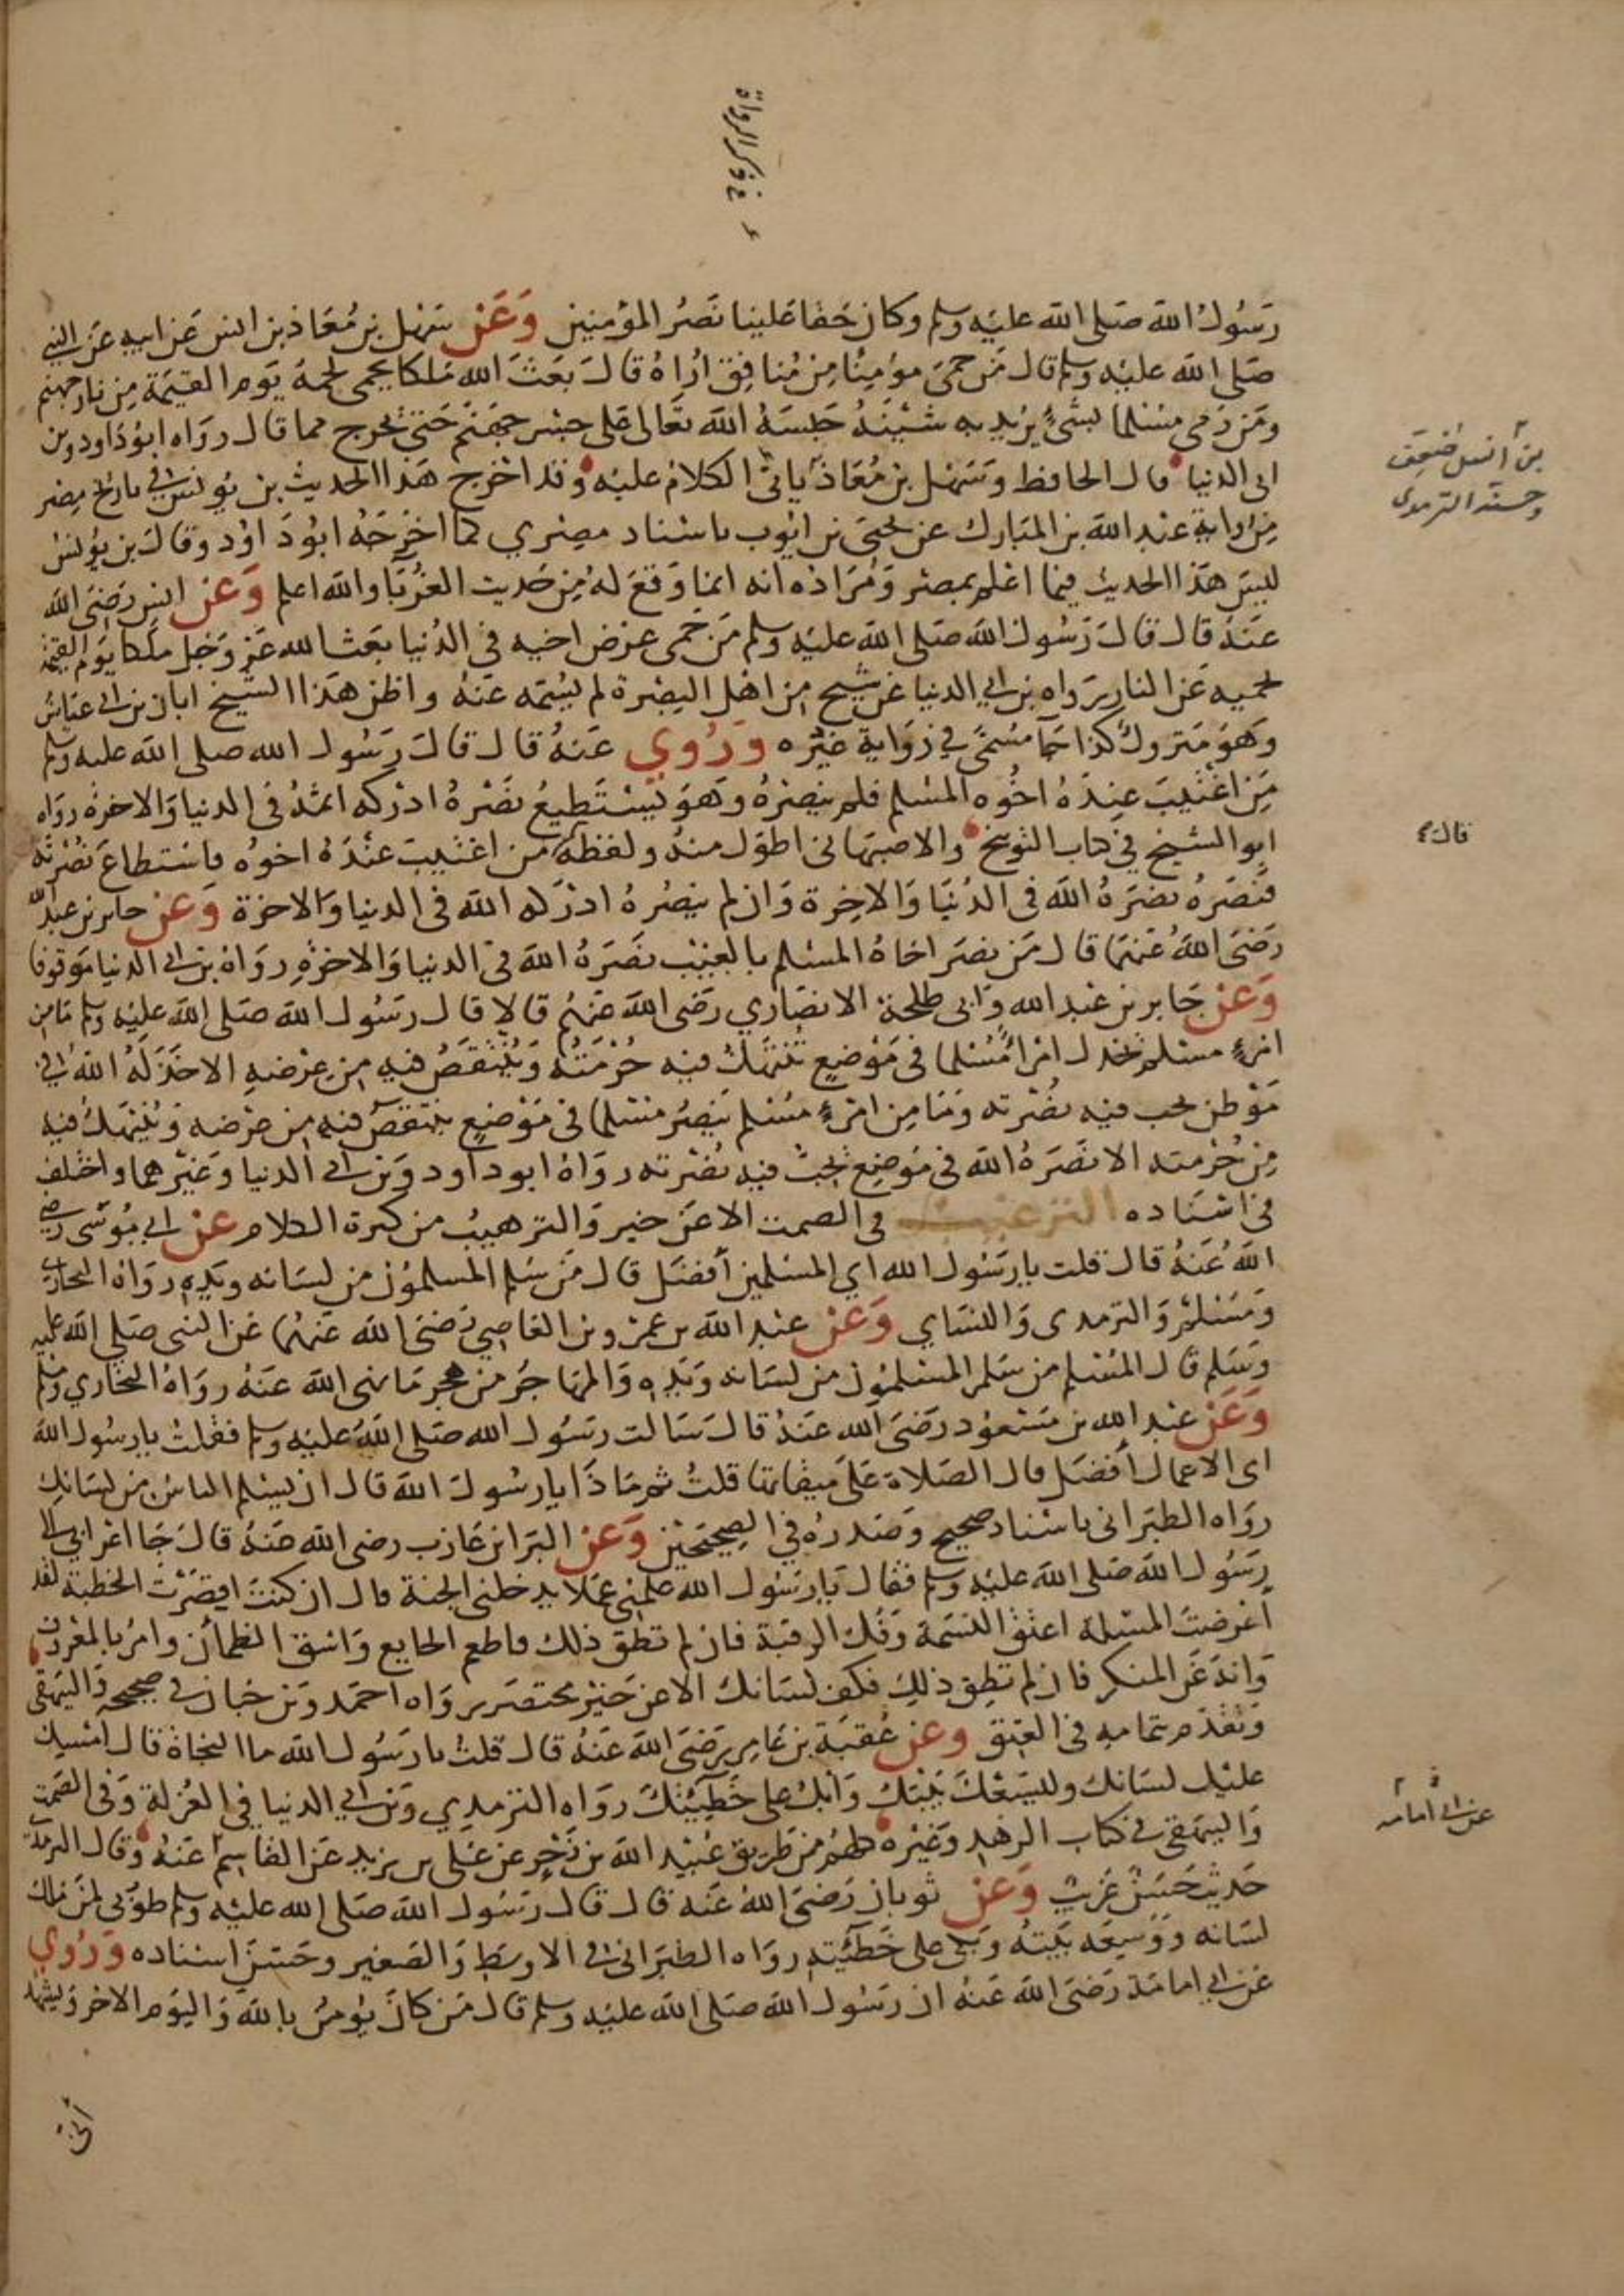 رسول الله صلى الله عليه وسلم وكان حقا علينا نصر المؤمنين وعن سهل بن معاذ بن انس عن ابيه عن النبي
صلى الله عليه وسلم قال من حمى مؤمنا من منافق اراه قال بعث الله ملكا يحمي لحمه يوم القيمة من نار جهنم
ومن رمى مسلما بشيء يريد به شينه حبسه الله تعالى على جسر جهنم حتى يخرج مما قال رواه ابو داود وبن
ابي الدنيا قال الحافظ وسهل بن معاذ ياتي الكلام عليه وقد اخرج هذا الحديث بن يونس في تاريخ مصر
من رواية عبد الله بن المبارك عن يحيى بن ايوب باسناد مصري كما اخرجه ابو داود وقال بن يونس
ليس هذا الحديث فيما اعلم بمصر ومراده انه انما وقع له من حديث الغربا والله اعلم وعن انس رضي الله
عنه قال قال رسول الله صلى الله عليه وسلم من حمى عرض اخيه في الدنيا بعث الله عز وجل ملكا يوم القيمة
يحميه عن النار رواه بن ابي الدنيا عن شيخ من اهل البصرة لم يسمه عنه واظن هذا الشيخ ابان بن ابي عياش
وهو متروك كذا جا مسمى في رواية غيره وروي عنه قال قال رسول الله صلى الله عليه وسلم
من اغتيب عنده اخوه المسلم فلم ينصره وهو يستطيع نصره ادركه اثمه في الدنيا والاخرة رواه
ابو الشيخ في كتاب التوبيخ والاصبهاني اطول منه ولفظه من اغتيب عنده اخوه فاستطاع نصرته
فنصره نصره الله في الدنيا والاخرة وان لم ينصره ادركه الله في الدنيا والاخرة وعن جابر بن عبد الله
رضي الله عنهما قال من نصر اخاه المسلم بالغيب نصره الله في الدنيا والاخرة رواه بن ابي الدنيا موقوفا
وعن جابر بن عبد الله وابي طلحة الانصاري رضي الله عنهم قالا قال رسول الله صلى الله عليه وسلم ما من
امرئ مسلم يخذل امرأ مسلما في موضع تنتهك فيه حرمته وينتقص فيه من عرضه الا خذله الله في
موطن يحب فيه نصرته وما من امرئ مسلم ينصر مسلما في موضع ينتقص فيه من عرضه وينتهك فيه
من حرمته الا نصره الله في موضع يحب فيه نصرته رواه ابو داود وبن ابي الدنيا وغيرهما واختلف
في اسناده الترغيب في الصمت الا عن خير والترهيب من كثرة الكلام عن ابي موسى رضي
الله عنه قال قلت يا رسول الله اي المسلمين أفضل قال من سلم المسلمون من لسانه ويده رواه البخاري
ومسلم والترمدى والنساي وعن عبد الله بن عمرو بن العاصي رضي الله عنهما عن النبي صلى الله عليه
وسلم قال المسلم من سلم المسلمون من لسانه ويده والمهاجر من هجر ما نهى الله عنه رواه البخاري ومسلم
وعن عبد الله بن مسعود رضي الله عنه قال سالت رسول الله صلى الله عليه وسلم فقلت يا رسول الله
اي الاعمال أفضل قال الصلاة على ميقاتها قلت ثم ماذا يا رسول الله قال ان يسلم الناس من لسانك
رواه الطبراني باسناد صحيح وصدره في الصحيحين وعن البرا بن عازب رضي الله عنه قال جا اعرابي الى
رسول الله صلى الله عليه وسلم فقال يا رسول الله علمني عملا يدخلني الجنة قال ان كنت اقصرت الخطبة لقد
أعرضت المسلة اعتق النسمة وفك الرقبة فان لم تطق ذلك فاطعم الجايع واسق الظمآن وامر بالمعروف
وانه عن المنكر فان لم تطق ذلك فكف لسانك الا عن خير مختصر رواه احمد وبن حبان في صحيحه والبيهقي
وتقدم بتمامه في العتق وعن عقبة بن عامر رضي الله عنه قال قلت يا رسول الله ما النجاة قال امسك
عليك لسانك وليسعك بيتك وابك على خطيئتك رواه الترمدي وبن ابي الدنيا في العزلة وفي الصمت
والبيهقي في كتاب الزهد وغيره كلهم من طريق عبيد الله بن زحر عن علي بن يزيد عن القاسم عنه وقال الترمدي
حديث حسن غريب وعن ثوبان رضي الله عنه قال قال رسول الله صلى الله عليه وسلم طوبى لمن ملك
لسانه ووسعه بيته وبكى على خطيئته رواه الطبراني في الاوسط والصغير وحسن اسناده وروي
عن ابي امامة رضي الله عنه ان رسول الله صلى الله عليه وسلم قال من كان يؤمن بالله واليوم الاخر وليشهد
بن أنس ضعف
وحسنه الترمدى
قال
عن ابي امامه